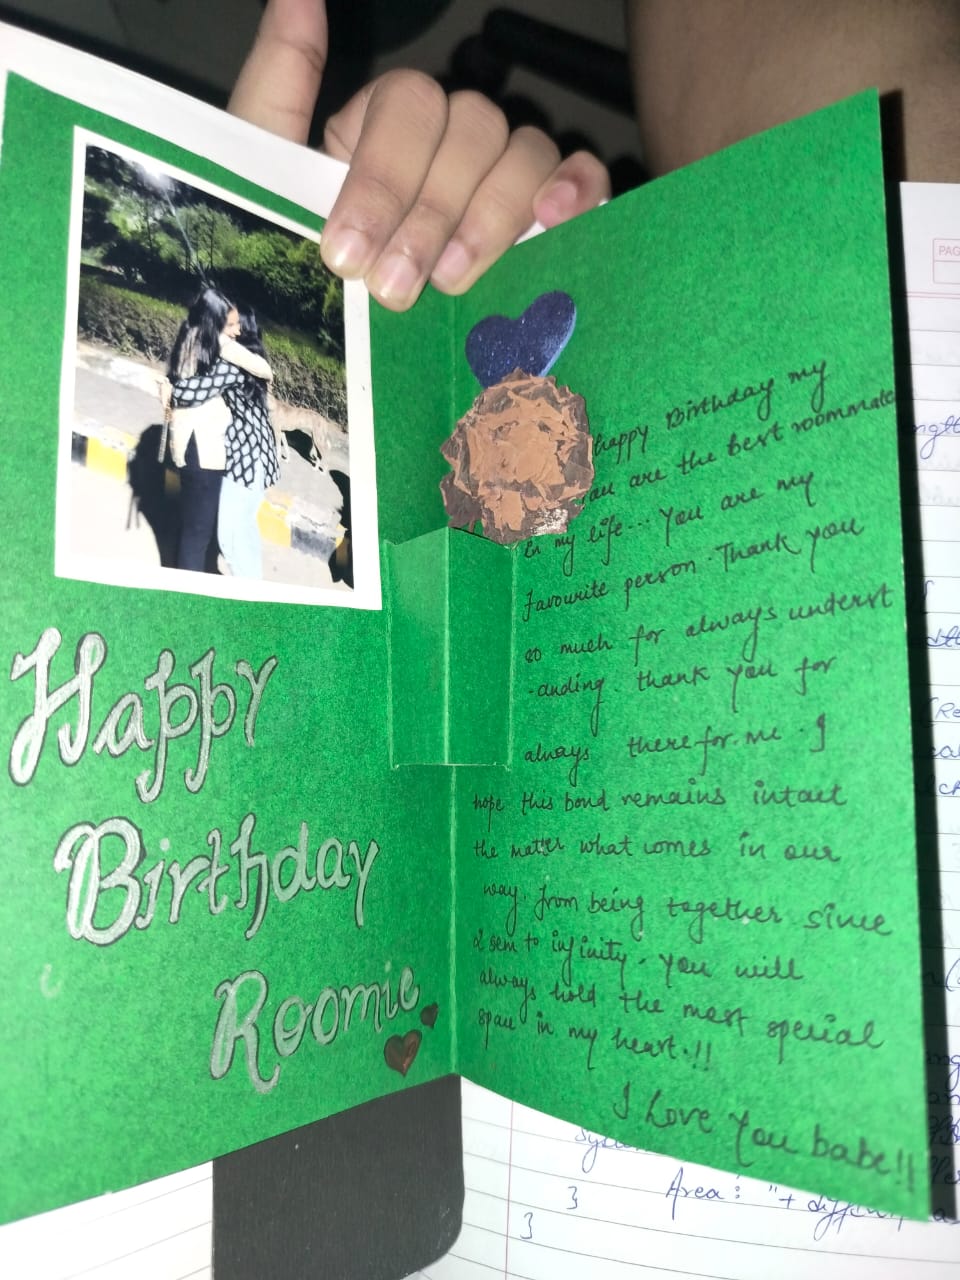 Happy
Birthday
Roomie
happy Birthday my
you are the best roommate
in my life... You are my
favourite person. Thank you
so much for always underst
-anding. thank you for
always there for me. I
hope this bond remains intact
the matter what comes in our
way. from being together since
2 sem to infinity. you will
always hold the most special
space in my heart.!!
I Love You babe!!
PAG
}
Area: "+
}